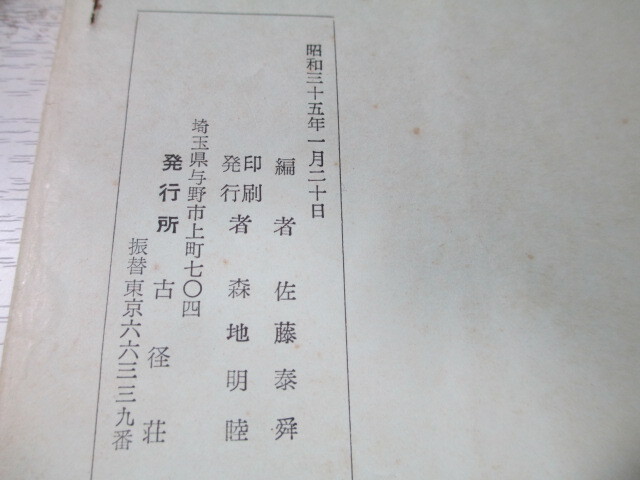 昭和三十五年一月二十日
編者 佐藤泰舜
印刷発行者 森地明陸
埼玉県与野市上町七〇四
発行所 古径荘
振替東京六六三三九番